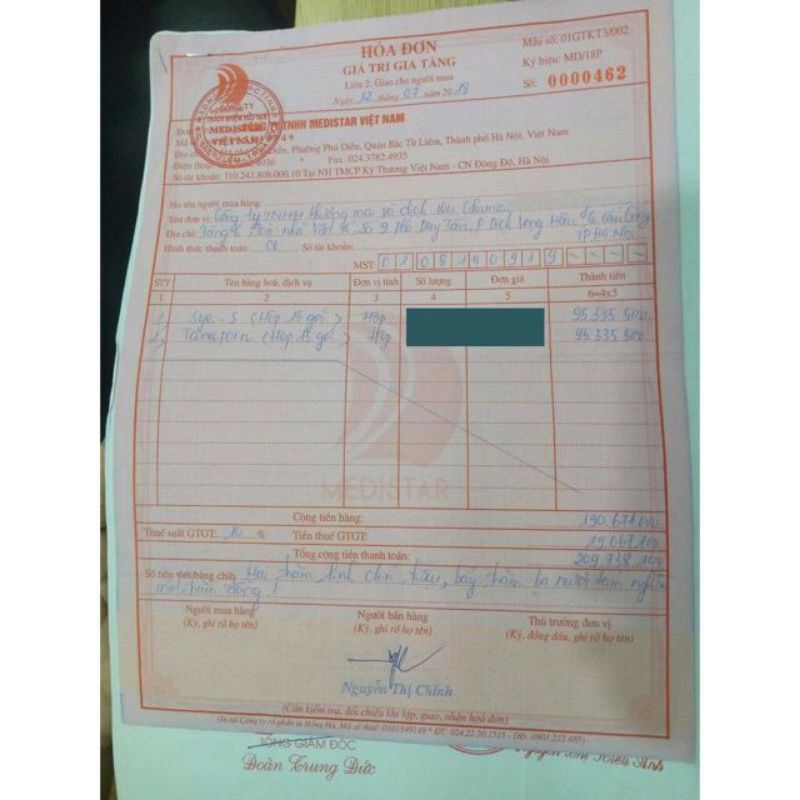 HÓA ĐƠN
GIÁ TRỊ GIA TĂNG
Liên 2: Giao cho người mua
Ngày 12 tháng 07 năm 2018
Mẫu số: 01GTKT3/002
Ký hiệu: MD/18P
Số: 0000462
CÔNG TY
TRÁCH NHIỆM HỮU HẠN
MEDISTAR
VIỆT NAM
TNHH MEDISTAR VIỆT NAM
Phường Phú Diễn, Quận Bắc Từ Liêm, Thành phố Hà Nội, Việt Nam
Điện thoại: 4936 * Fax: 024.3782.4935
Số tài khoản: 110.243.808.000.10 Tại NH TMCP Kỹ Thương Việt Nam - CN Đông Đô, Hà Nội
Họ tên người mua hàng:
Tên đơn vị: Công ty TNHH thương mại và dịch vụ
Địa chỉ: Tầng 6 Toà nhà Việt Á, Số 9 phố Duy Tân, P Dịch Vọng Hậu, Q Cầu Giấy
TP Hà Nội
Hình thức thanh toán: Số tài khoản:
MST: 0108140919
STT Tên hàng hoá, dịch vụ Đơn vị tính Số lượng Đơn giá Thành tiền
1 2 3 4 5 6=4x5
1, (Hộp 15 gói) Hộp 95.335.500
2, (Hộp 15 gói) Hộp 95.335.500
MEDISTAR
Cộng tiền hàng: 190.671.000
Thuế suất GTGT: 10 % Tiền thuế GTGT: 19.067.100
Tổng cộng tiền thanh toán: 209.738.100
Số tiền viết bằng chữ: Hai trăm linh chín triệu, bảy trăm ba mươi tám nghìn
một trăm đồng!
Người mua hàng Người bán hàng Thủ trưởng đơn vị
(Ký, ghi rõ họ tên) (Ký, ghi rõ họ tên) (Ký, đóng dấu, ghi rõ họ tên)
Nguyễn Thị Chinh
(Cần kiểm tra, đối chiếu khi lập, giao, nhận hoá đơn)
(In tại Công ty cổ phần in Hồng Hà, Mã số thuế: 0101549149 * ĐT: 024.22.20.1515 - DĐ: 0903.232.485)
TỔNG GIÁM ĐỐC
Đoàn Trung Đức